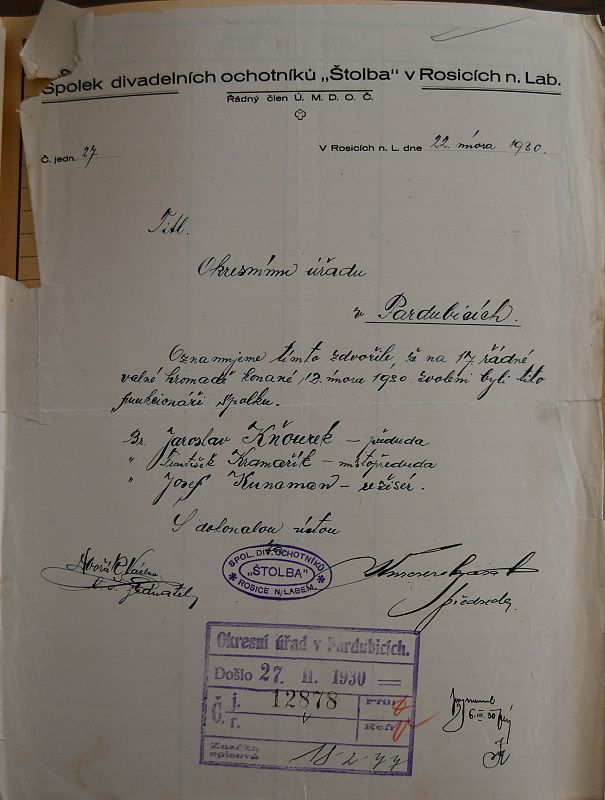 Spolek divadelních ochotníků „Štolba“ v Rosicích n. Lab.
Řádný člen Ú. M. D. O. Č.
Č. jedn. 27
V Rosicích n. L. dne 22. února 1930.
Titl.
Okresnímu úřadu
v Pardubicích.
Oznamujeme tímto zdvořile že na 17. řádné
valné hromadě konané 12. února 1930. zvoleni byli tito
funkcionáři spolku.
Br. Jaroslav Kňourek – předseda
" František Kramařík – místopředseda
" Josef Kunaman – režisér.
S dokonalou úctou
Dvořák Václav
t. č. jednatel
předseda
SPOL. DIV. OCHOTNÍKŮ
„ŠTOLBA“
ROSICE N/LABEM.
Okresní úřad v Pardubicích.
Došlo 27. II. 1930
Č. j. 12878 Příl.
r. Ref.
Značka
spisová 18-2-77
6. III. 30